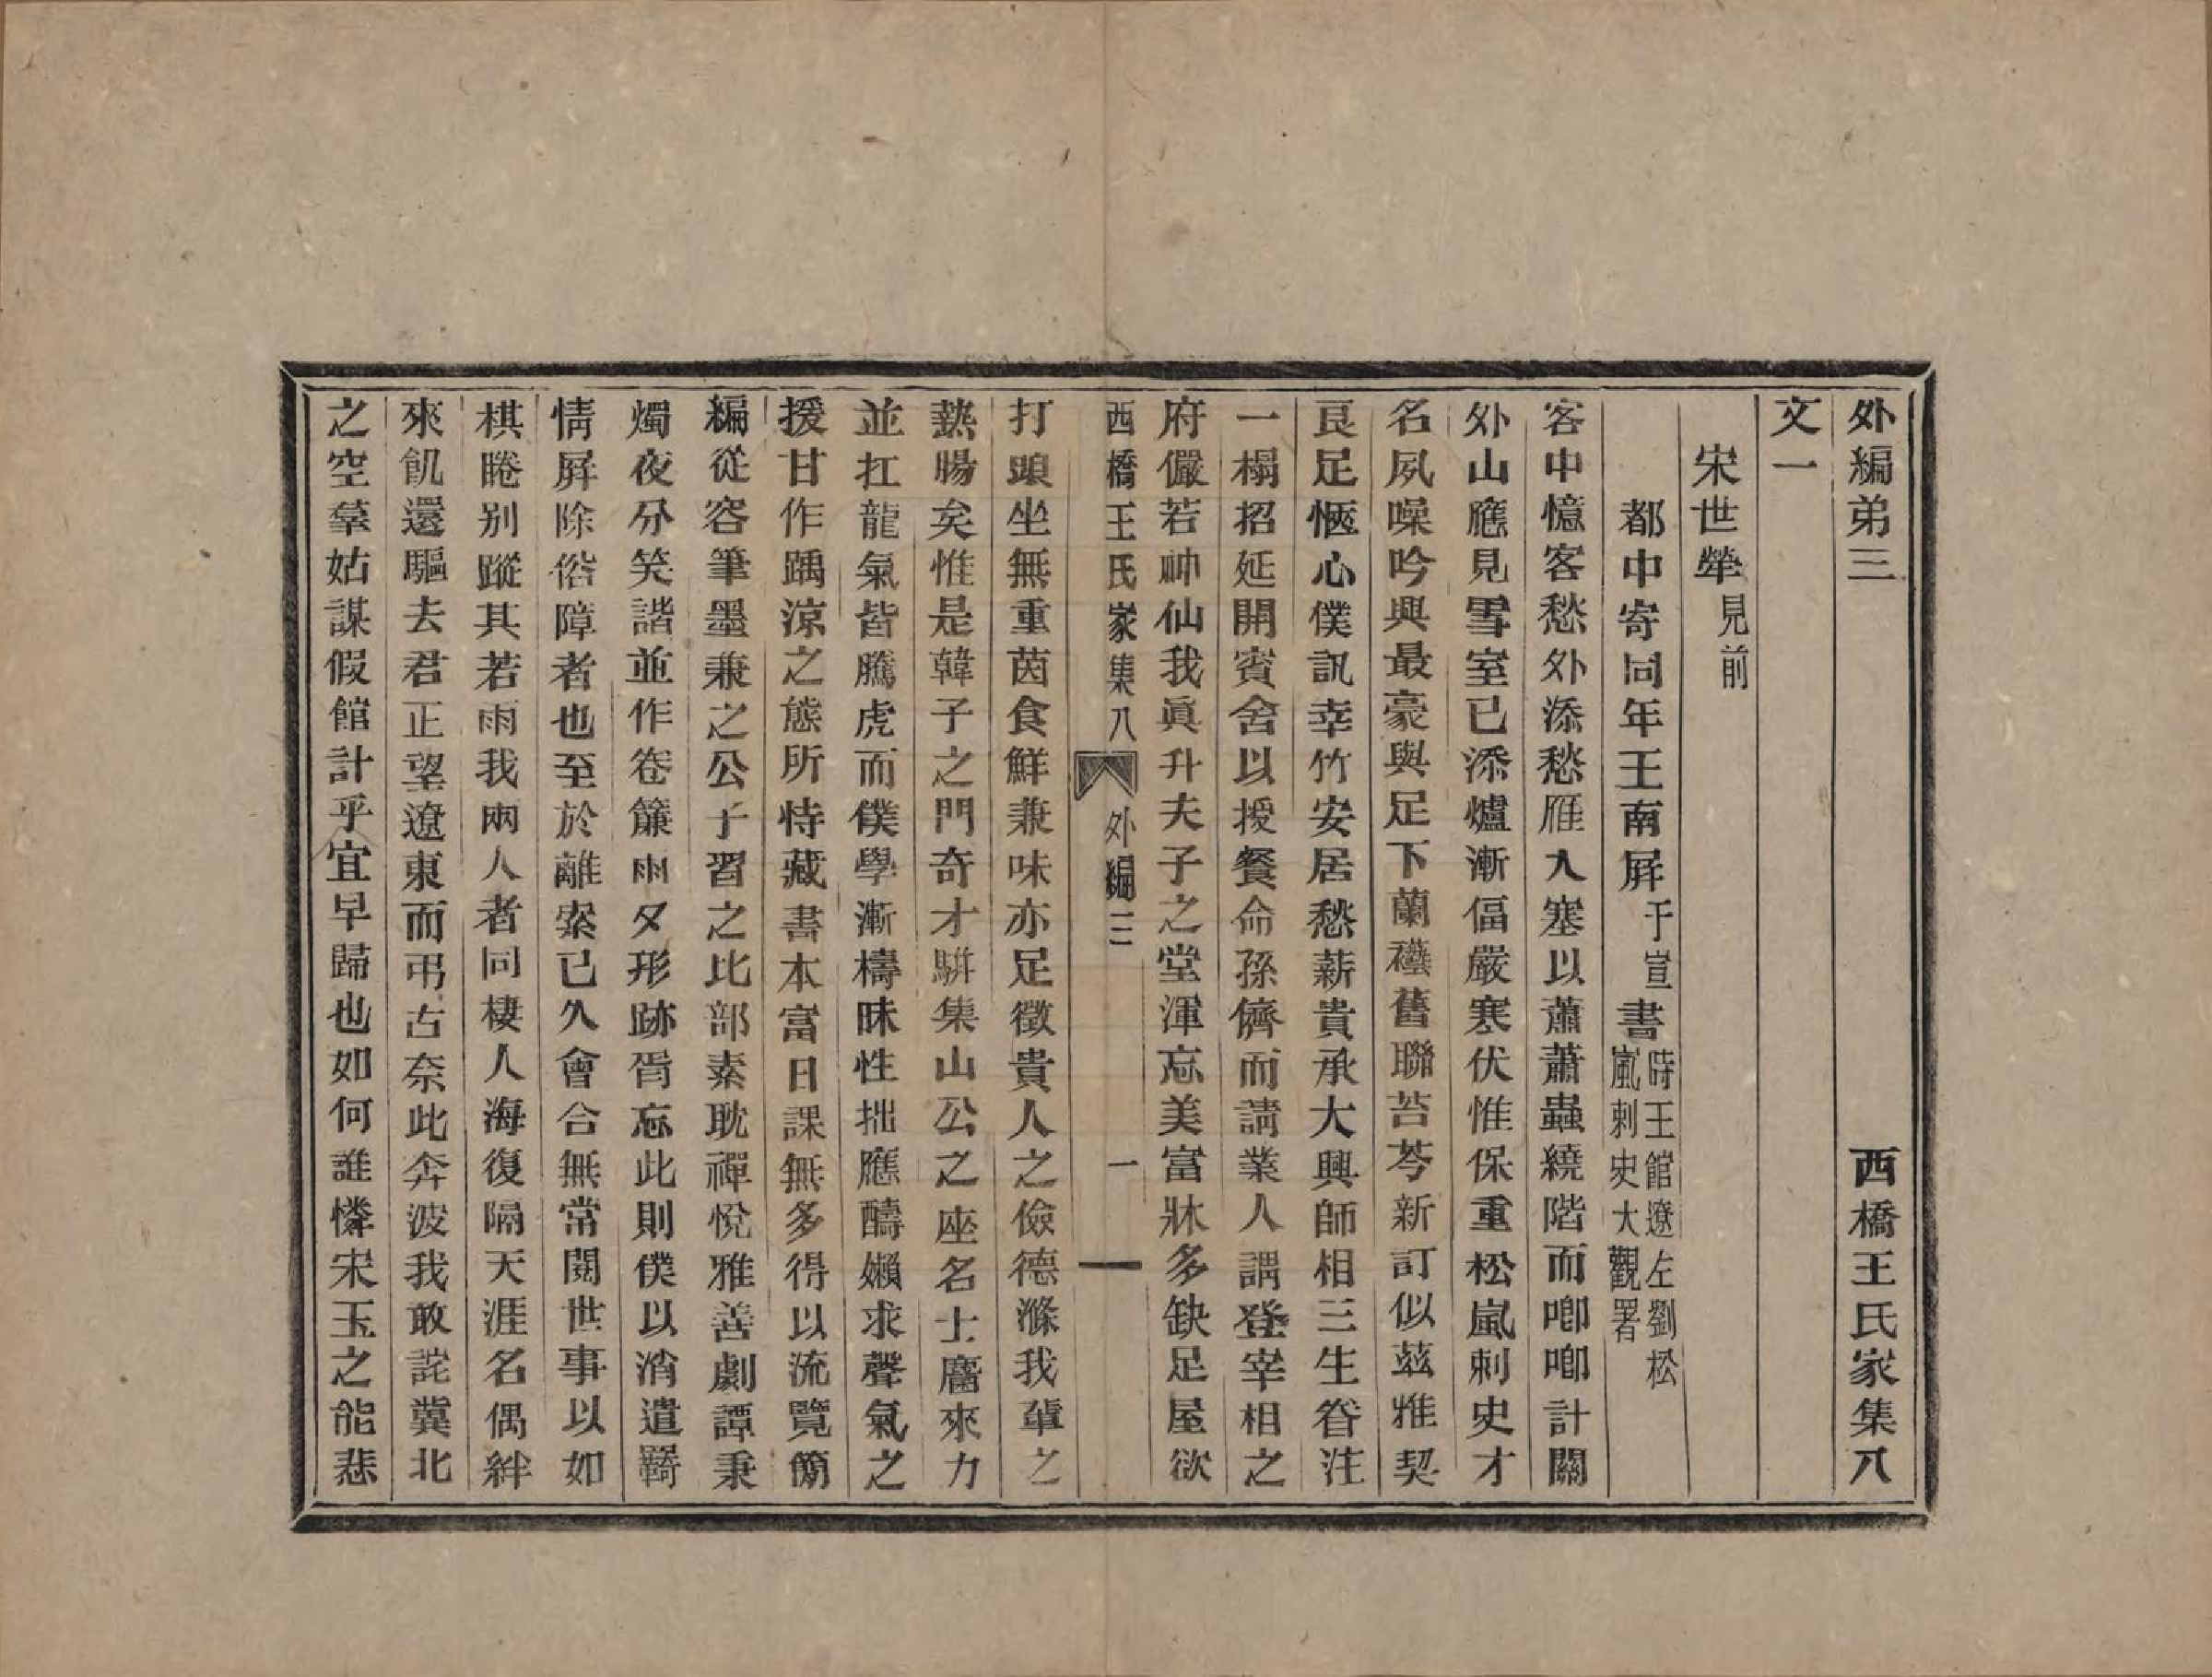 外編弟三　西橋王氏家集八
文一
宋世犖見前
都中寄同年王南屏千宣書時王館遼左劉松嵐刺史大觀署
客中憶客愁外添愁雁入塞以蕭蕭蟲繞階而喞喞計關
外山應見雪室已添爐漸偪嚴寒伏惟保重松嵐刺史才
名夙噪吟興最豪與足下蘭襼舊聯苔芩新訂似茲雅契
良足愜心僕訊幸竹安居愁薪貴承大興師相三生眷注
一榻招延開賓舍以授餐命孫儕而請業人謂登宰相之
府儼若神仙我眞升夫子之堂渾忘美富牀多缺足屋欲
打頭坐無重茵食鮮兼味亦足徵貴人之儉德滌我輩之
熱腸矣惟是韓子之門奇才駢集山公之座名士麕來力
並扛龍氣皆騰虎而僕學漸檮昧性拙應醻嬾求聲氣之
援甘作踽涼之態所恃藏書本富日課無多得以流覽簡
編從容筆墨兼之公子習之比部素耽禪悅雅善劇譚秉
燭夜分笑諧並作卷簾雨夕形跡胥忘此則僕以消遣羇
情屏除俗障者也至於離索已久會合無常閱世事以如
棋睠別蹤其若雨我兩人者同棲人海復隔天涯名偶絆
來飢還驅去君正望遼東而弔古奈此奔波我敢詫冀北
之空羣姑謀假館計乎宜早歸也如何誰憐宋玉之能悲
西橋王氏家集八　外編三　一